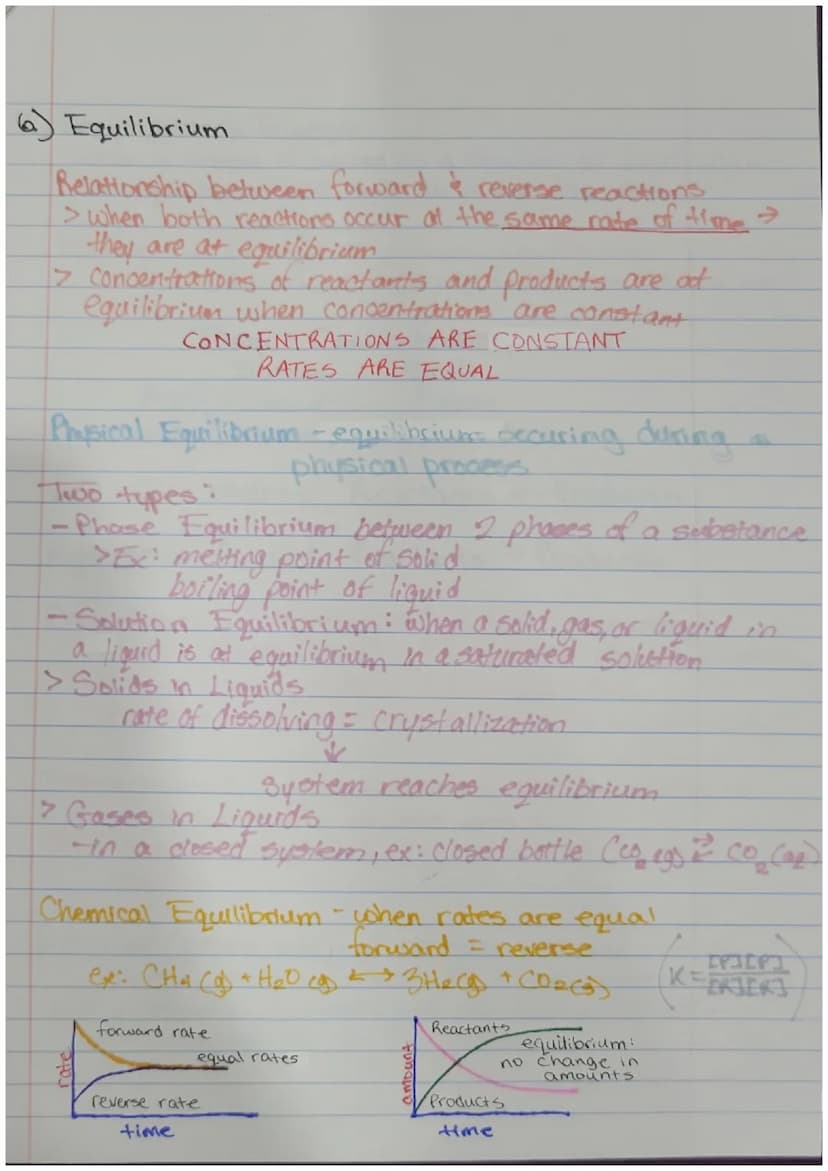 6) Equilibrium
Relationship between forward & reverse reactions
> when both reactions occur at the same rate of time →
they are at equilibrium
> concentrations of reactants and products are at
equilibrium when concentrations are constant
CONCENTRATIONS ARE CONSTANT
RATES ARE EQUAL
Physical Equilibrium - equilibrium occuring during a
physical process
Two types:
- Phase Equilibrium between 2 phases of a substance
> Ex: melting point of solid
boiling point of liquid
- Solution Equilibrium: When a solid, gas, or liquid in
a liquid is at equilibrium in a saturated solution
> Solids in Liquids
rate of dissolving = crystallization
↓
system reaches equilibrium
> Gases in Liquids
- in a closed system, ex: closed bottle (CO₂(g) ⇄ CO₂(aq)
Chemical Equilibrium - when rates are equal
forward = reverse
ex: CH₄(g) + H₂O(g) ↔ 3H₂(g) + CO₂(g)
(K = [P][P] / [R][R])
forward rate
equal rates
reverse rate
rate
time
Reactants
equilibrium:
no change in
amounts
Products
amount
time